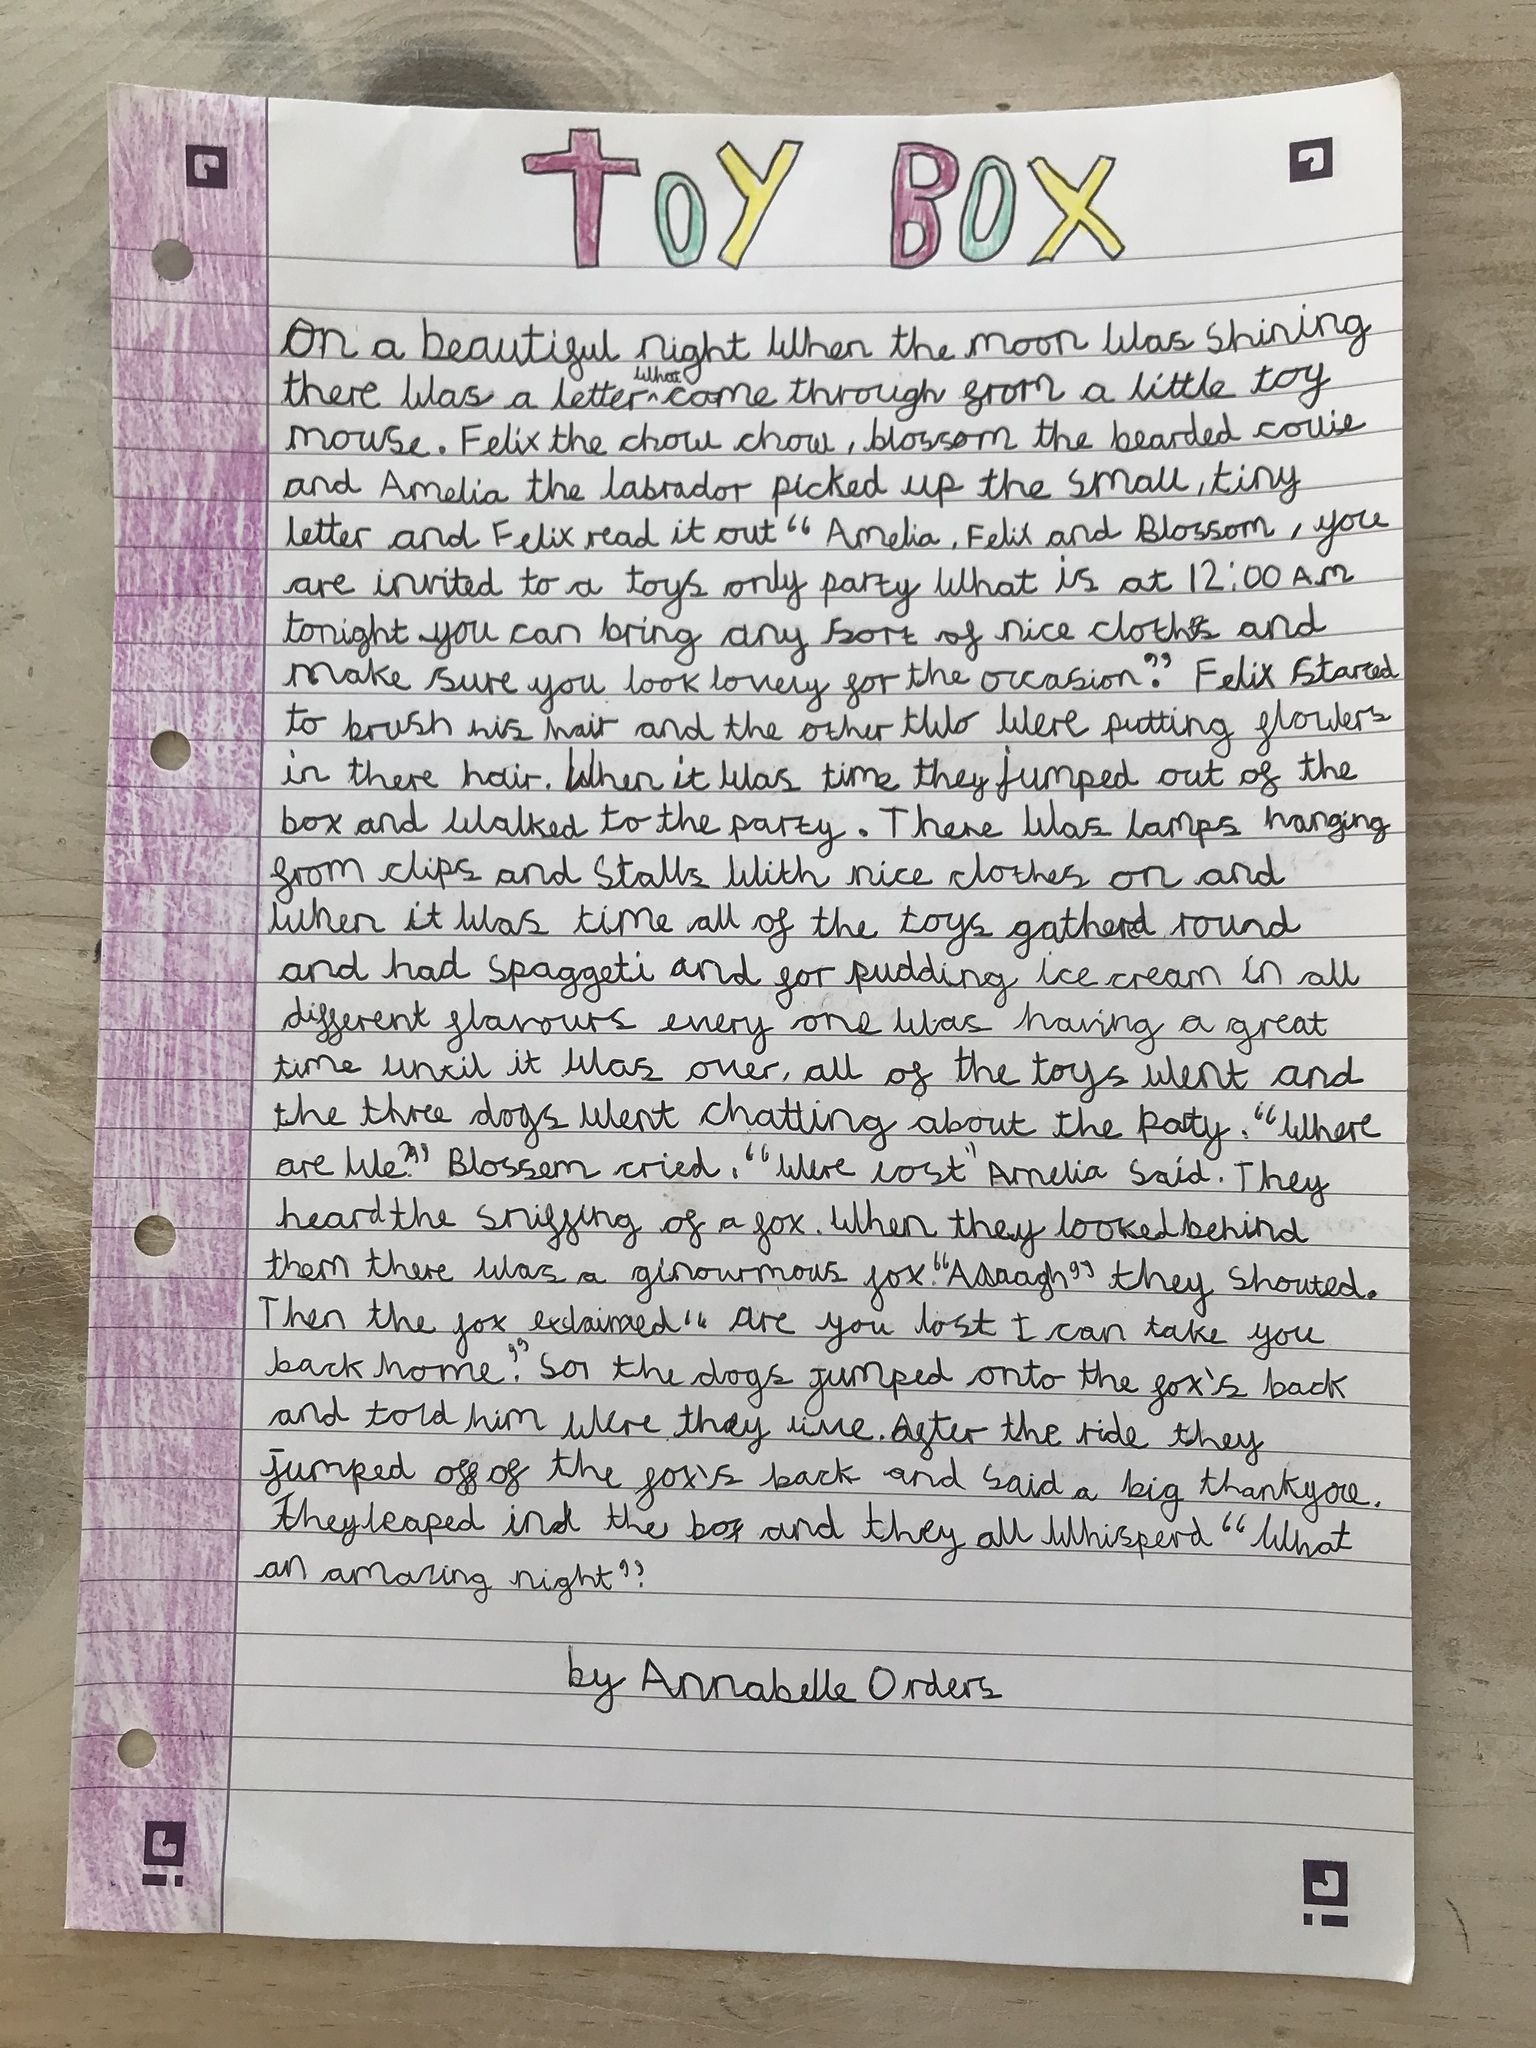 TOY BOX
On a beautiful night When the moon Was Shining
there Was a letter What came through from a little toy
mouse. Felix the chow chow, blossom the bearded collie
and Amelia the labrador picked up the small, tiny
letter and Felix read it out “ Amelia, Felix and Blossom, you
are invited to a toys only party What is at 12:00 A.M
tonight you can bring any sort of nice cloths and
make sure you look lovely for the occasion.” Felix Started
to brush his hair and the other two Were putting flowers
in there hair. When it Was time they jumped out of the
box and Walked to the party. There Was lamps hanging
from clips and Stalls With nice clothes on and
When it Was time all of the toys gatherd round
and had spaggeti and for pudding ice cream in all
different flavours every one Was having a great
time until it Was over, all of the toys Went and
the three dogs Went chatting about the paty. “Where
are We?” Blossom cried. “Were lost” Amelia said. They
heard the sniffing of a fox. When they looked behind
them there Was a ginourmous fox “Aaaagh” they shouted.
Then the fox exclaimed “ are you lost I can take you
back home.” So the dogs jumped onto the fox's back
and told him Were they live. After the ride they
jumped off of the fox's back and said a big thankyou.
They leaped in the box and they all Whisperd “ What
an amazing night”
by Annabelle Orders